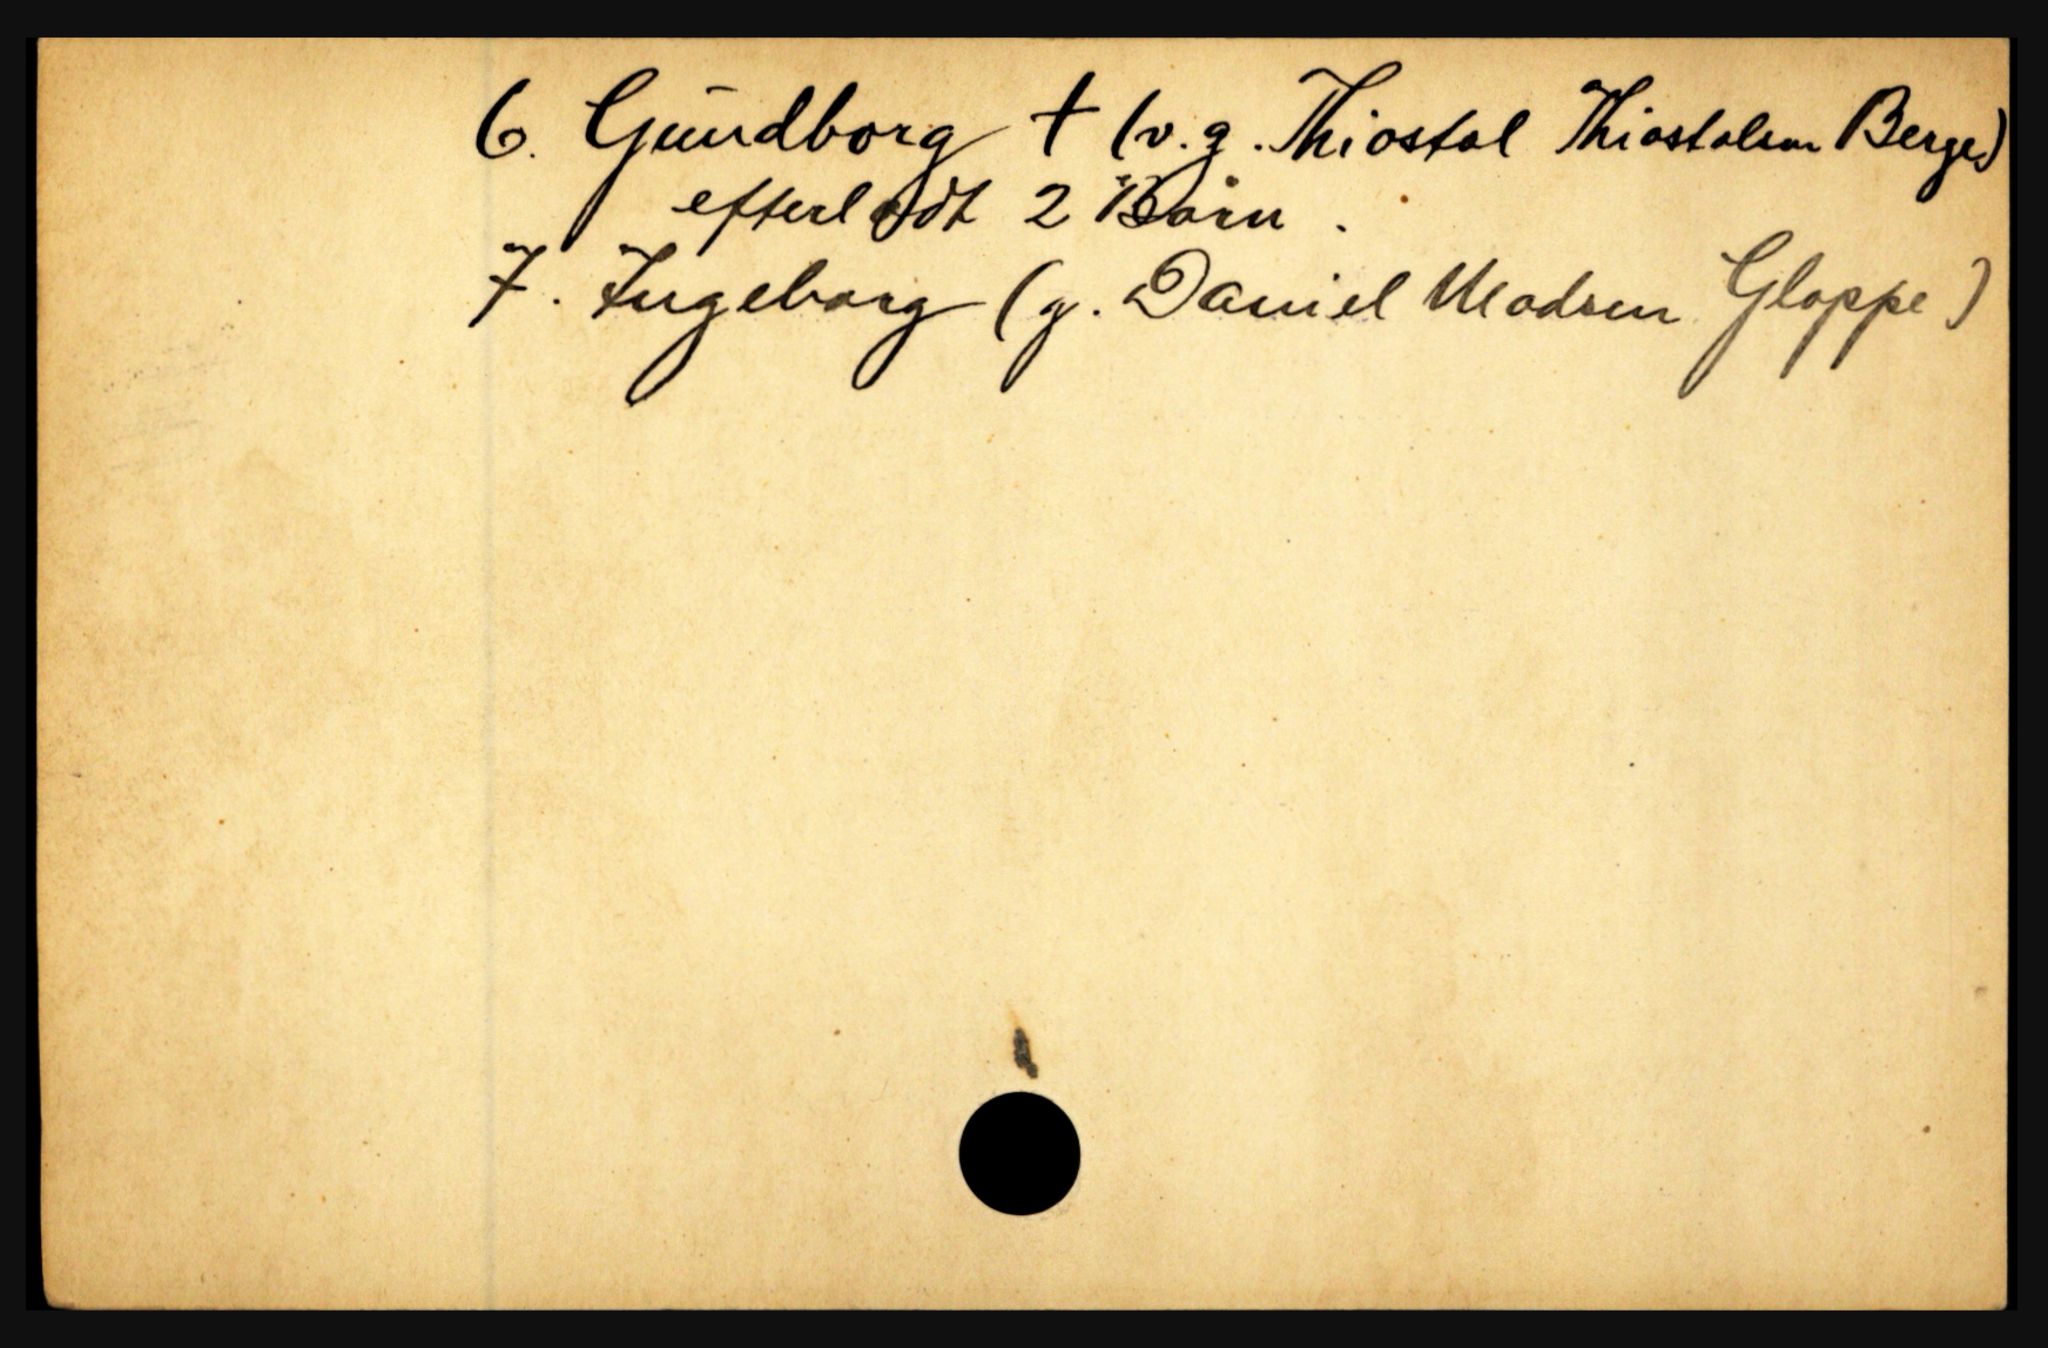 6. Gundborg † (v. g. Thiostol Thiostolsen Berge)
efterladt 2 Börn.
7. Ingeborg (g. Daniel Madsen Gloppe)